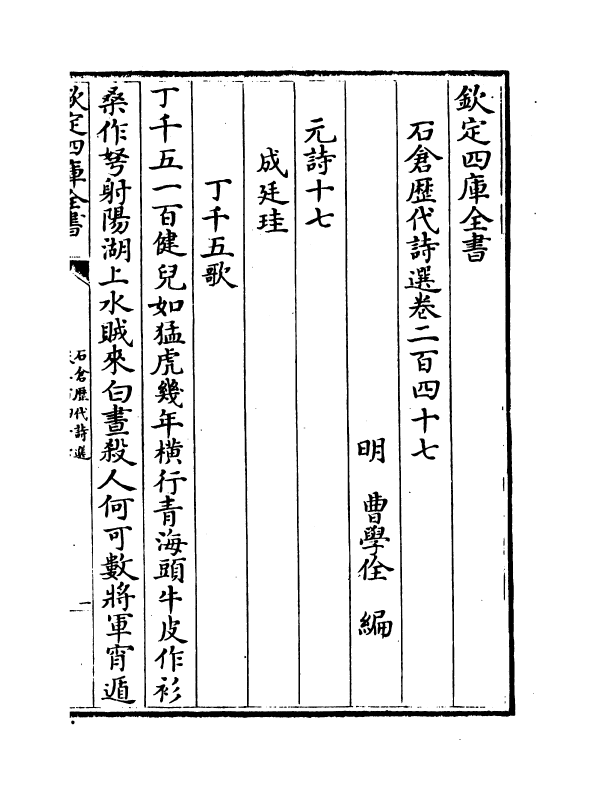 欽定四庫全書
石倉歷代詩選卷二百四十七
明 曹學佺 編
元詩十七
成廷珪
丁千五歌
丁千五一百健兒如猛虎幾年橫行青海頭牛皮作衫
桑作弩射陽湖上水賊來白晝殺人何可數將軍宵遁
欽定四庫全書
石倉歷代詩選
一